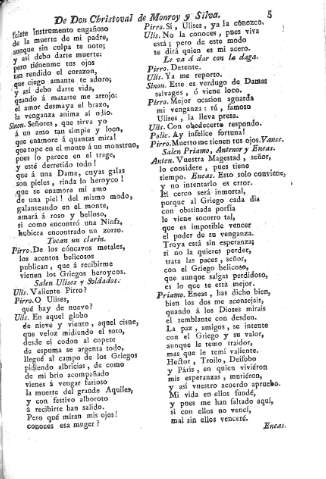 De Don Christoval de Monroy y Silva. 5
falso instrumento engañoso
de la muerte de mi padre,
aunque sin culpa te noto;
y así debo darte muerte:
pero tiéneme tus ojos
tan rendido el corazon,
que ciego amante te adoro;
y así debo darte vida,
quando á matarte me arrojo:
el amor desmaya el brazo,
la venganza anima al odio.
Simon. Señores, que sirva yo
á un asno tan simple y loco,
que enamore á quantas mira!
que tope en el monte á un monstruo,
pues lo parece en el trage,
y esté derretido todo!
que á una Dama, cuyas galas
son pieles, rinda lo heroyco!
que se enamore mi amo
de una piel! del mismo modo,
galanteando en el monte,
amará á roso y belloso,
si como encontró una Ninfa,
hubiera encontrado un zorro.
Tocan un clarin.
Pirro. De los cóncavos metales,
los acentos belicosos
publican, que á recibirme
vienen los Griegos heroycos.
Salen Ulises y Soldados.
Ulis. Valiente Pirro?
Pirro. O Ulises,
qué hay de nuevo?
Ulis. En aquel globo
de nieve y viento, aquel cisne,
que veloz midiendo el saco,
desde el codon al copete
de espuma se argenta todo,
llegué al campo de los Griegos
pidiendo albricias, de como
de mi brio acompañado
vienes á vengar furioso
la muerte del grande Aquiles,
y con festivo alboroto
á recibirte han salido.
Pero qué miran mis ojos!
conoces esa muger?
Pirro. Si, Ulises, ya la conozco.
Ulis. No la conoces, pues viva
está; pero de este modo
te dirá quien es mi acero.
Le va á dar con la daga.
Pirro. Detente.
Ulis. Ya me reporto.
Simon. Este es verdugo de Damas
salvages, ó viene loco.
Pirro. Mejor ocasion aguarda
mi venganza: tú, famoso
Ulises, la lleva presa.
Ulis. Con obedecerte respondo.
Polic. Ay infelice fortuna!
Pirro. Muerto me tienen tus ojos. Vanse.
Salen Priamo, Antenor y Eneas.
Anten. Vuestra Magestad, señor,
lo considere, pues tiene
tiempo. Eneas. Esto solo convince,
y no intentarlo es error.
El cerco será inmortal,
porque al Griego cada dia
con obstinada porfia
le viene socorro tal,
que es imposible vencer
el poder de su venganza.
Troya está sin esperanza;
si no la quieres perder,
trata las paces, señor,
con el Griego belicoso,
que aunque salgas perdidoso,
es lo que te está mejor.
Priamo. Eneas, has dicho bien,
bien los dos me aconsejais,
quando á los Dioses mirais
el semblante con desdon.
La paz, amigos, se intente
con el Griego y su valor,
aunque le temo traidor,
mas que le temí valiente.
Hector, Troilo, Deifobo
y Páris, en quien viviéron
mis esperanzas, muriéron,
y así vuestro acuerdo apruebo.
Mi vida en ellos fundé,
y pues me han faltado aquí,
si con ellos no vencí,
mal sin ellos venceré.
Eneas.